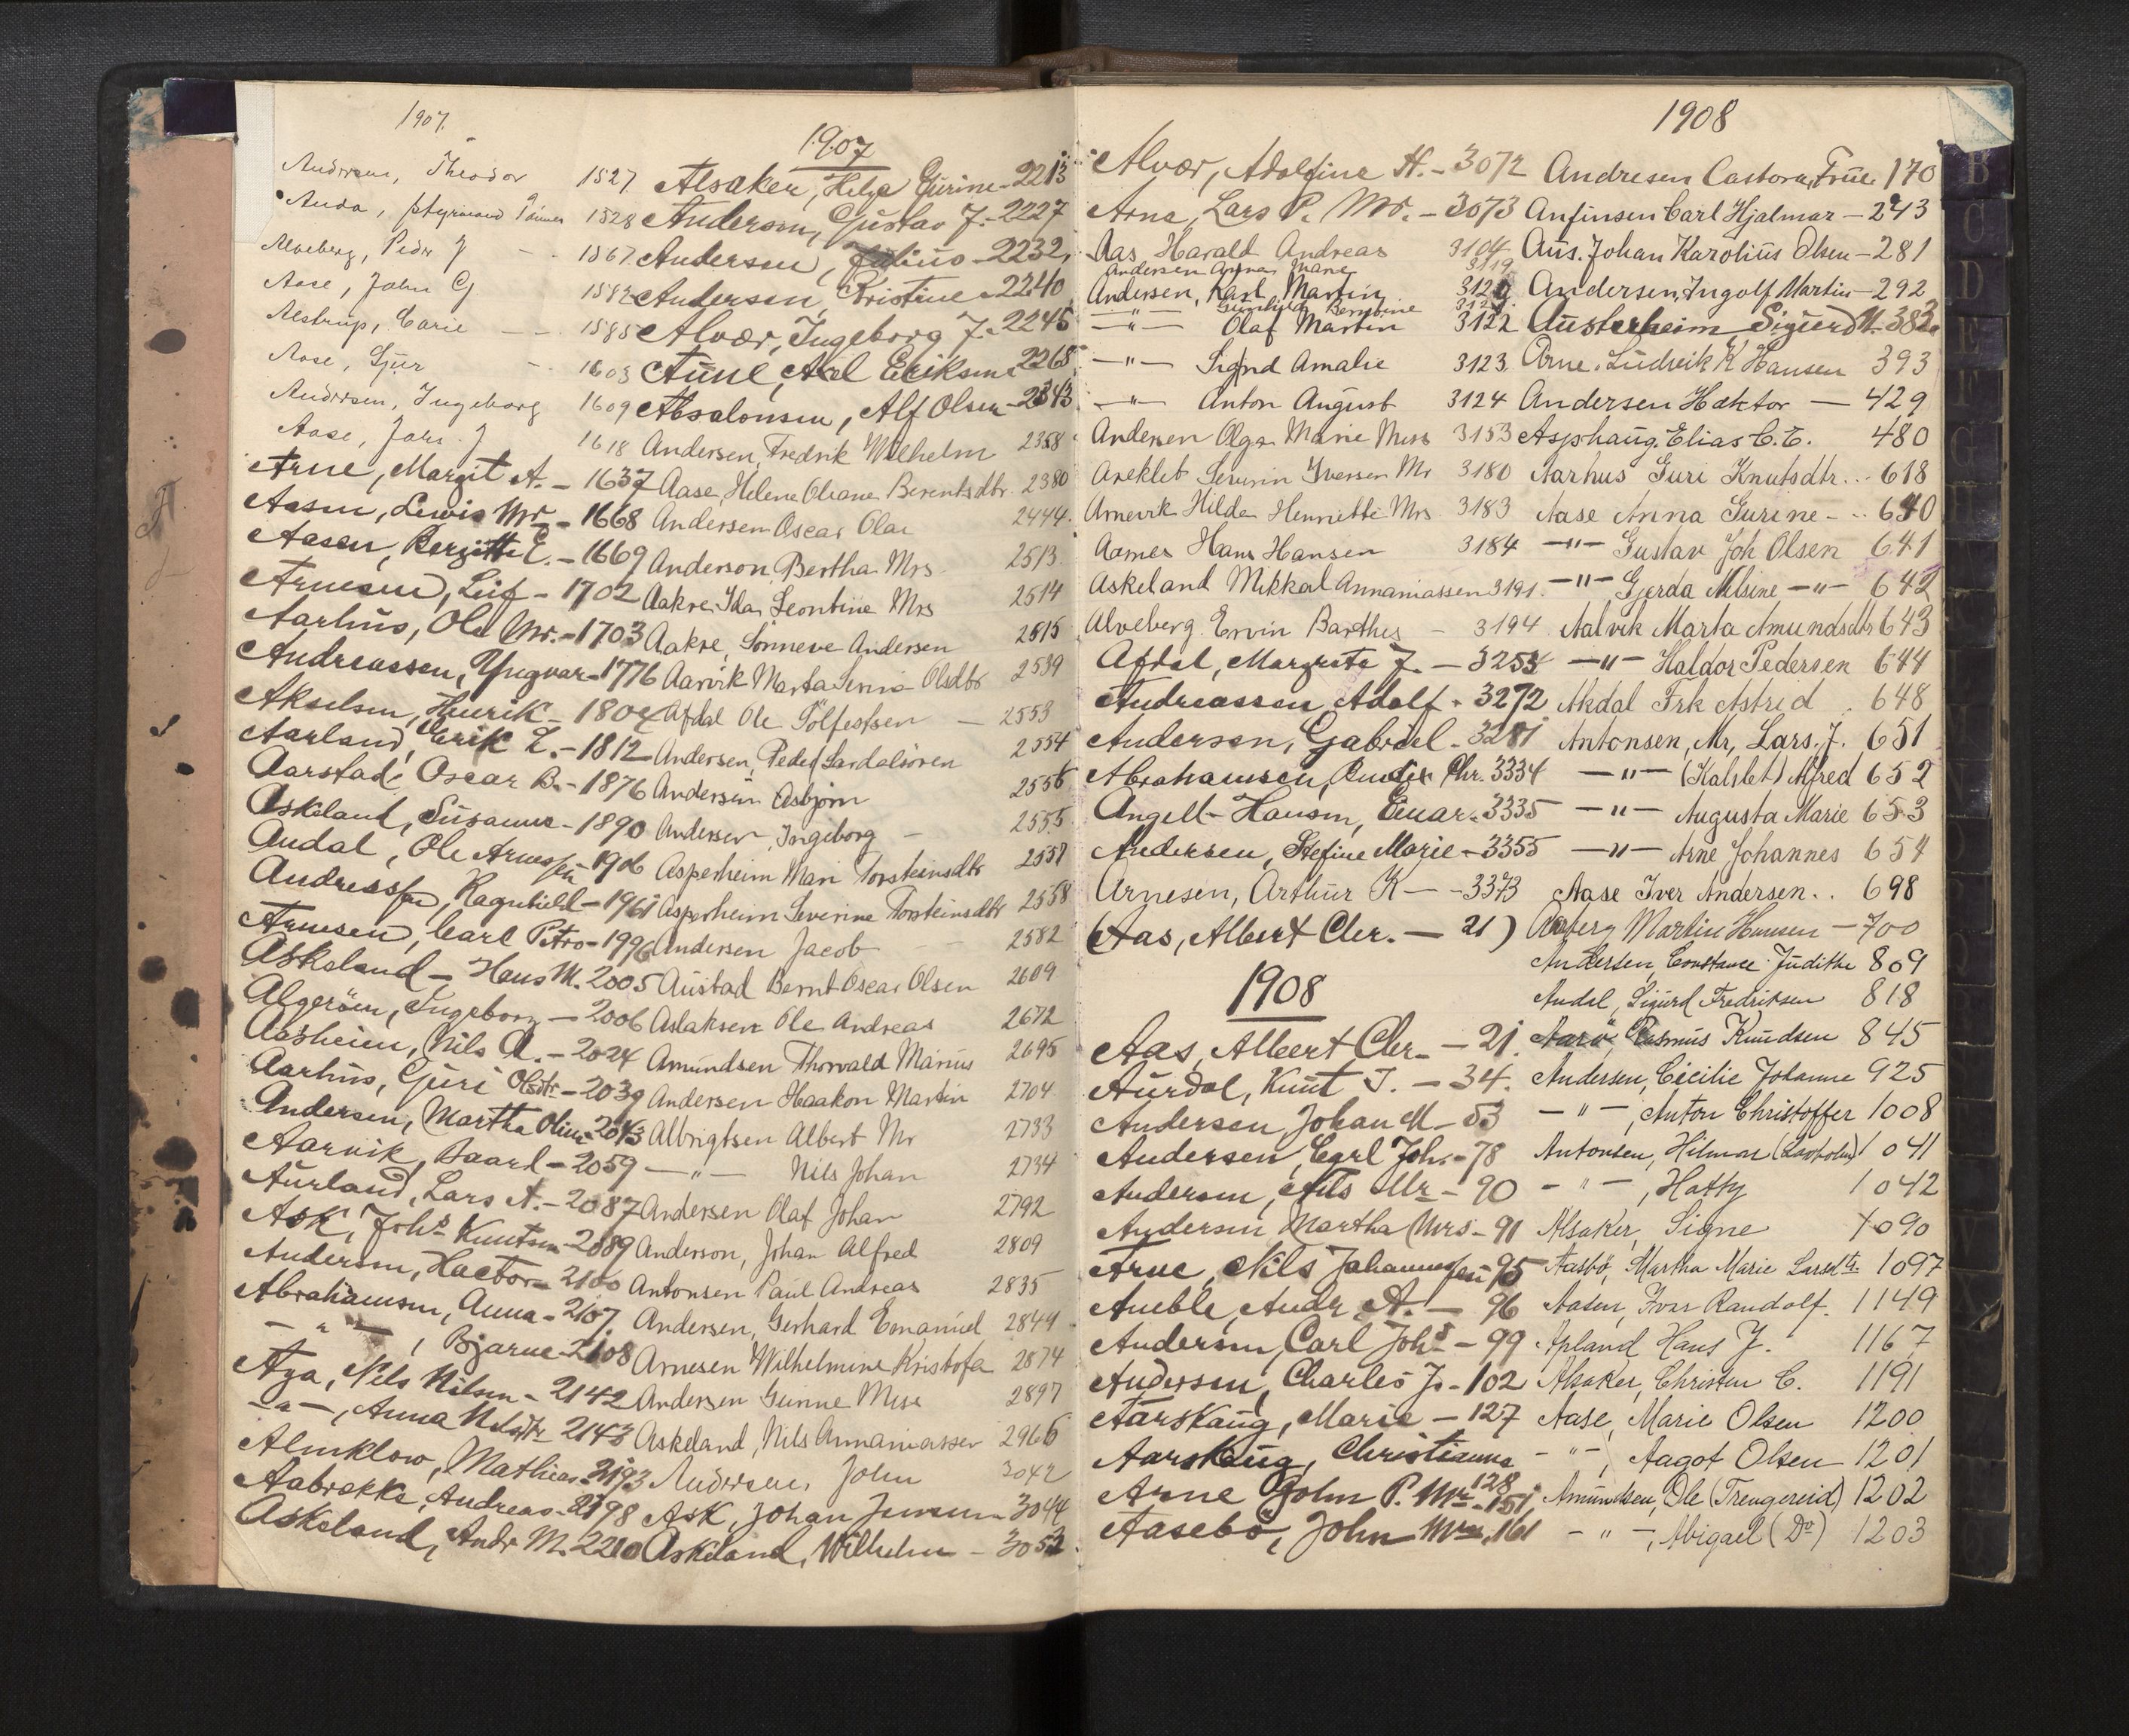 1907.
Andersen, Theodor 1527
Anda, 1528
Alveberg, Peder J 1567
Aase, John G 1582
Alstrup, Carie 1585
Aase, Sjur 1603
Andersen, Ingeborg 1609
Aase, Johs. J 1618
Arne, Margit A. - 1637
Aasen, Lewis Mr - 1668
Aasen, Bergitte E. - 1669
Arnesen, Leif - 1702
Aarhüs, Ole Mr. - 1703
Andreassen, Yngvar - 1776
Akselsen, Henrik - 1804
Aarland, Erik L. - 1812
Aarstad, Oscar B. - 1876
Askeland, Susanne - 1890
Audal, Ole Arnessen - 1906
Andreassen, Ragnhild - 1961
Arnesen, Carl Petro - 1996
Askeland - Hans M. 2005
Algeröen, Ingeborg - 2006
Aasheim, Nils A. - 2024
Aarhüs, Güri Olsdtr - 2039
Andersen, Martha Oline 2043
Aarvik, Baard - 2059
Aürland, Lars A. - 2087
Ask, Johs Knutsen - 2089
Andersen, Hactor - 2100
Abrahamsen, Anna - 2107
- " - , Bjarne - 2108
Aga, Nils Nilsen - 2142
- " - , Anna Nilsdtr 2143
Almklow, Mathias - 2193
Aabrekke, Andreas - 2198
Askeland, Andr M. 2210
1907
Alsaker, Helga Gürine - 2213
Andersen, Güstav J. - 2227
Andersen, Julius - 2232
Andersen, Kristine - 2240
Alvær, Ingeborg J. - 2245
Aune, Axel Eriksen 2268
Absalonsen, Alf Olsen - 2343
Andersen, Fredrik Wilhelm 2358
Aase, Helene Oleane Berentsdtr. 2380
Andersen Oscar Olai 2444
Anderson Bertha Mrs 2513
Aakre, Ida Leontine Mrs 2514
Aakre, Sönneve Andersen 2515
Aarvik Marta Olsdtr 2539
Afdal Ole Tölfestsen - 2553
Andersen, Peder 2554
Andersen Asbjörn 2556
Andersen, Ingeborg - 2555
Asperheim Mari Torsteinsdtr 2557
Asperheim Severine Torsteinsdtr 2558
Andersen Jacob 2582
Aüstad Bernt Oscar Olsen 2609
Aslaksen Ole Andreas 2672
Amündsen Thorvald Marius 2695
Andersen Haakon Martin 2704
Albrigtsen Albert Mr 2733
- " - Nils Johan 2734
Andersen Olaf Johan 2792
Anderson, Johan Alfred 2809
Antonsen Paül Andreas 2835
Andersen, Gerhard Emanüel 2844
Arnesen Wilhelmine Kristofa 2874
Andersen Gunne Miss 2897
Askeland, Nils Annaniassen 2966
Andersen, John 3042
Ask, Johan Jensen - 3044
Askeland, Wilhelm - 3052
Alvær, Adolfine H. - 3072
Arne, Lars P. Mr. - 3073
Aas Harald Andreas 3104
Andersen Anna Marie 3119
Andersen, Karl Martin 3120
- " - Gunhild Berntine 3121
- " - Olaf Martin 3122
- " - Signd Amalie 3123
- " - Anton August 3124
Andersen Olga Marie Miss 3153
Areklet Severin Iversen Mr 3180
Arnevik Hilda Henriette Mrs 3183
Aarnes Hans Hansen 3184
Askeland Mikkal Annaniassen 3191.
Alveberg Ervin Barthes - 3194
Afdal, Margreta J. - 3254
Andreassen, Adolf - 3272
Andersen, Gabriel - 3281
Abrahamsen, Chr. 3334
Angell-Hansen, Einar - 3335
Andersen, Stefine Marie - 3355
Arnesen, Arthür K - - 3373
(Aas, Albert Chr. - 21)
1908
Aas, Albert Chr. - 21.
Aürdal, Knüt I. - 34.
Andersen Johan M - 53
Andersen, Carl Joh. - 78
Andersen, Nils Mr - 90
Andersen Martha Mrs - 91
Arne, Nils Johannessen 95
Aneble, Andr. A. - 96
Andersen, Carl Johs - 99
Andersen, Charles J. - 102
Aarskaüg, Marie - 127
Aarskaüg, Christianna 128
Arne John P. Mr - 151
Aasebö, John 161
1908
Andresen Castora, Früe. 170
Anfinsen Carl Hjalmar - 243
Aüs. Johan Karoliüs Olsen - 281
Andersen, Ingolf Martin - 292
Aüsterheim Sigürd M. 383
Arne, Lüdvik K Hansen 393
Andersen Haktor - 429
Asphaüg. Elias C. E. 480
Aarhus Guri Knutsdtr... 618
Aase Anna Gurine - .. 640
- " - Gustav Joh Olsen 641
- " - Gjerda Nilsine - " - 642
Aalvik Marta Amundsdtr 643
- " - Haldor Pedersen 644
Akdal Frk Astrid 648
Antonsen, Mr, Lars. J. 651
- " - (Kalslet) Alfred 652
- " - Augusta Marie 653
- " - Arne Johannes 654
Aase Iver Andersen.. 698
Aaberg Martin Hansen - 700
Andersen, Constance Judithe 809
Andal, Sigürd Fredriksen 818
Aarö, Rasmüs Knüdsen 845
Andersen, Cecilie Johanne 925
- " - , Anton Christoffer 1008
Antonsen, Hilmar 1041
- " - , Hatty 1042
Alsaker, Signe 1090
Aasbö, Martha Marie Larsdtr. 1097
Aasen, Ivar Randolf. 1149
Apland Hans J. 1167
Alsaker, Christen C. 1191
Aase, Marie Olsen 1200
- " - , Aagot Olsen 1201
Amundsen, Ole (Trengereid) 1202
- " - , Abigael (Do) 1203
B
C
D
E
F
G
H